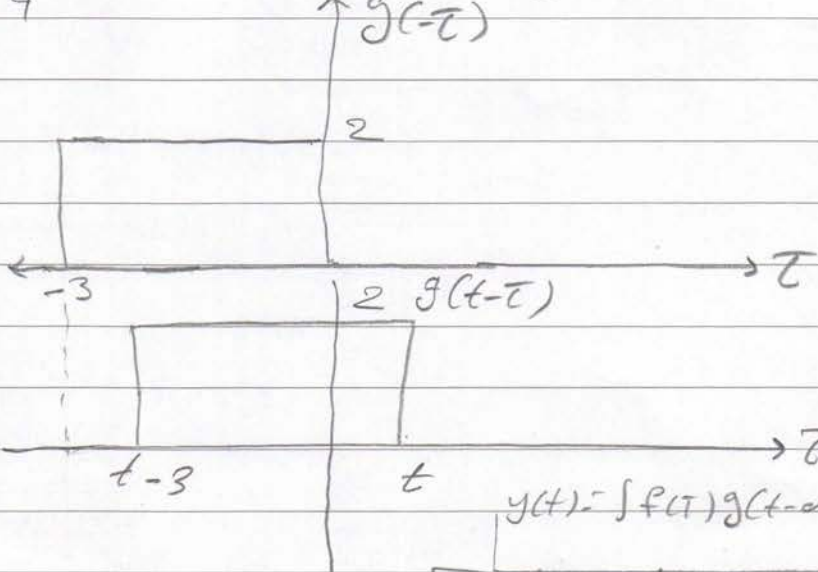 g(-τ)
2
τ
-3
2 g(t-τ)
τ
t-3
t
y(t)=∫f(τ)g(t-